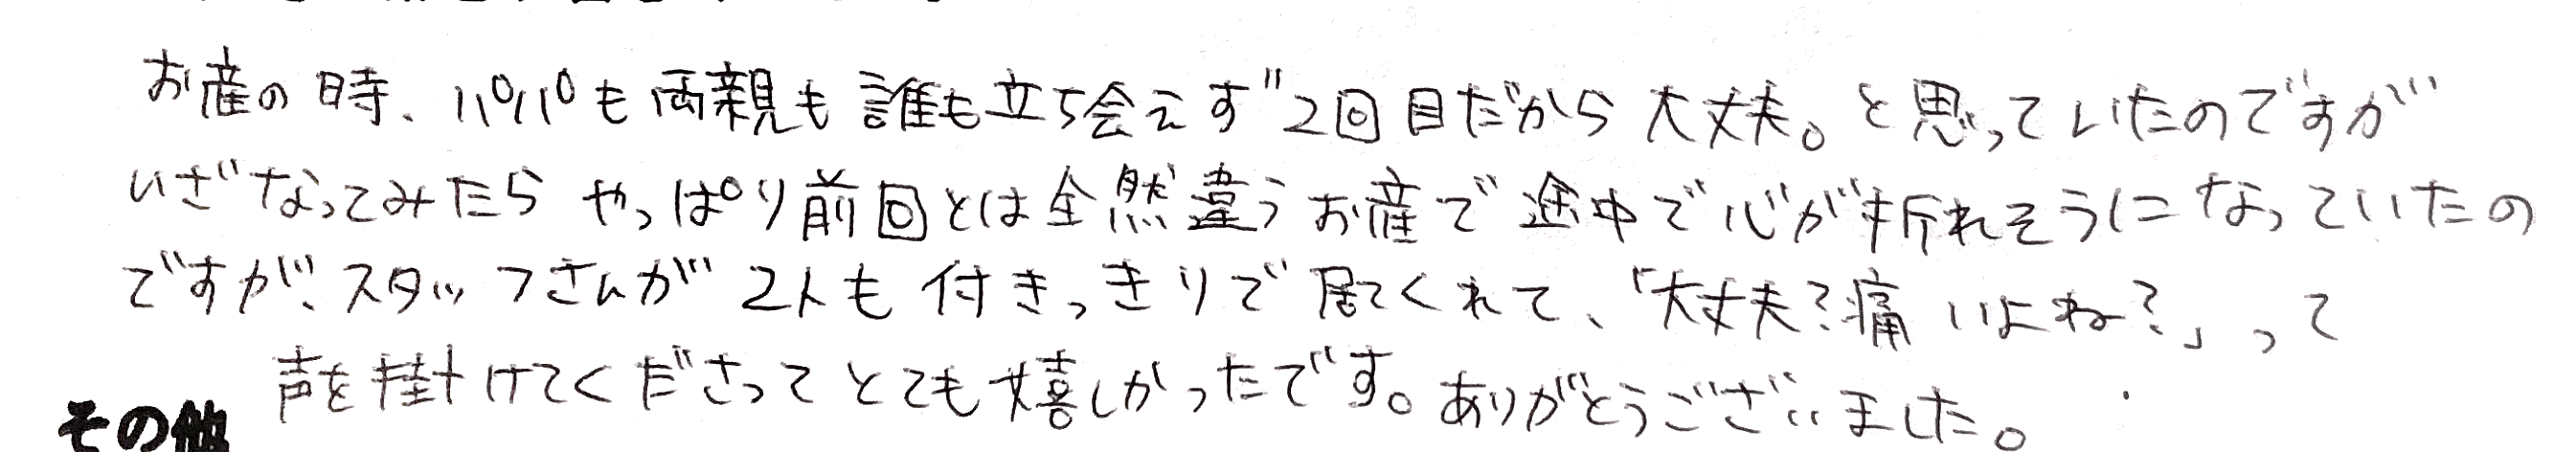 お産の時、パパも両親も誰も立ち会えず2回目だから大丈夫。と思っていたのですが
いざなってみたらやっぱり前回とは全然違うお産で途中で心が折れそうになっていたの
ですが、スタッフさんが2人も付きっきりで居てくれて、「大丈夫?痛いよね?」って
声を掛けてくださってとても嬉しかったです。ありがとうございました。
その他